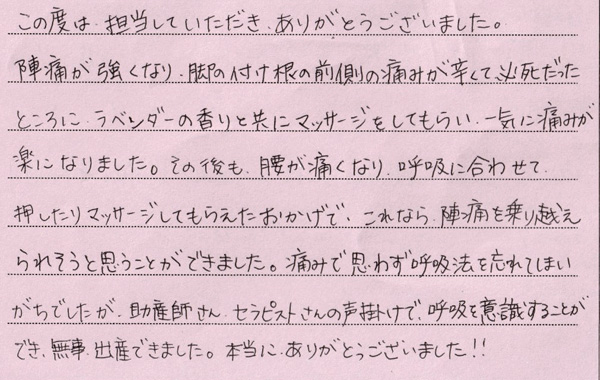 この度は、担当していただき、ありがとうございました。
陣痛が強くなり、脚の付け根の前側の痛みが辛くて必死だった
ところに、ラベンダーの香りと共にマッサージをしてもらい、一気に痛みが
楽になりました。その後も、腰が痛くなり、呼吸に合わせて、
押したりマッサージしてもらえたおかげで、これなら、陣痛を乗り越え
られそうと思うことができました。痛みで思わず呼吸法を忘れてしまい
がちでしたが、助産師さん、セラピストさんの声掛けで、呼吸を意識することが
でき、無事、出産できました。本当に、ありがとうございました!!